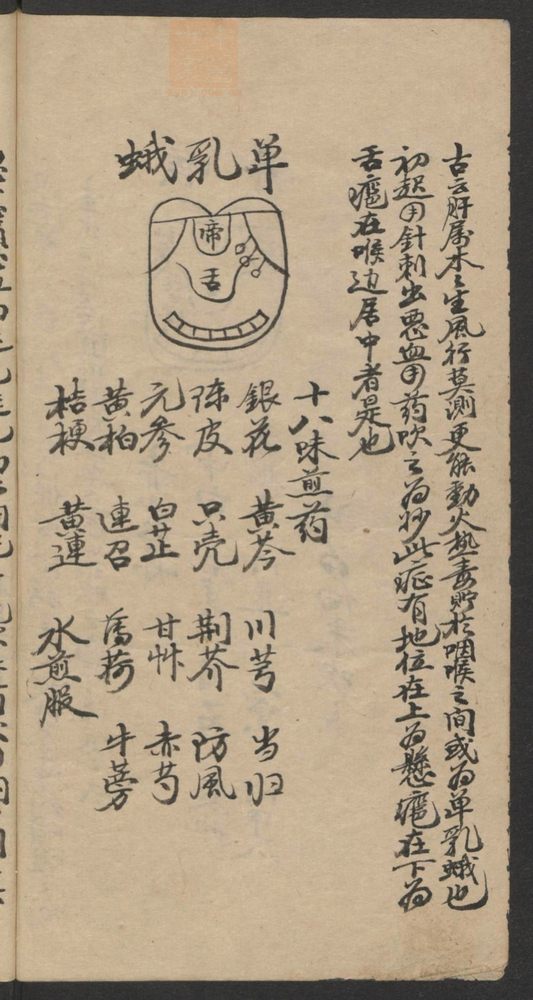 古云肝属木木生風行莫測更能動火热毒貯於咽喉之間或为单乳蛾也
初起用針刺出惡血用药吹之为妙此症有地位在上为懸癰在下为
舌癰在喉边居中者是也
单乳蛾
啼
舌
十八味煎药
銀花 黄芩 川芎 当归
陈皮 只壳 荆芥 防風
元参 白芷 甘艸 赤芍
黄柏 連召 荷 牛蒡
桔梗 黄連
水煎服